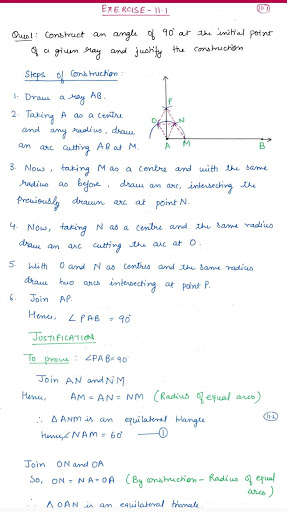 EXERCISE-11.1
11-1
Ques1: Construct an angle of 90° at the initial point
of a given ray and justify the construction
Steps of Construction:
1. Draw a ray AB.
2. Taking A as a centre
and any radius, draw
an arc cutting AB at M.
P
O
N
A
M
B
3. Now, taking M as a centre and with the same
radius as before, draw an arc, intersecting the
previously drawn arc at point N.
4. Now, taking N as a centre and the same radius
draw an arc cutting the arc at O.
5. With O and N as centres and the same radius
draw two arcs intersecting at point P.
6. Join AP.
Hence, ∠PAB = 90°
JUSTIFICATION
To prove: ∠PAB=90°
Join AN and NM
Hence, AM = AN = NM (Radius of equal arcs)
11-2
∴ Δ ANM is an equilateral triangle
Hence, ∠NAM = 60° — 1
Join ON and OA
So, ON = NA = OA (By construction - Radius of equal
arcs)
∴ Δ OAN is an equilateral triangle